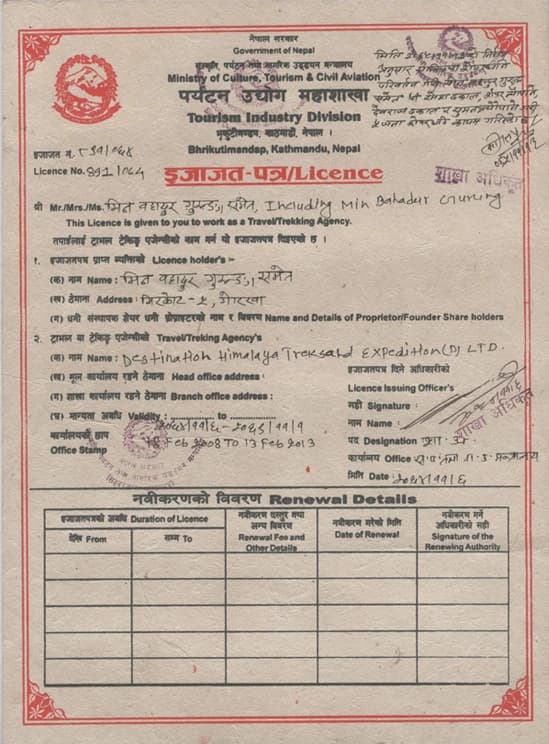 नेपाल सरकार
Government of Nepal
संस्कृति, पर्यटन तथा नागरिक उड्डयन मन्त्रालय
Ministry of Culture, Tourism & Civil Aviation
पर्यटन उद्योग महाशाखा
Tourism Industry Division
भृकुटीमण्डप, काठमाडौं, नेपाल ।
Bhrikutimandap, Kathmandu, Nepal
इजाजत नं. ८९१/०६४
Licence No. 891/064
इजाजत-पत्र/Licence
शाखा अधिकृत
श्री Mr./Mrs./Ms. मिन बहादुर गुरुङ, समेत, Including Min Bahadur Gurung
This Licence is given to you to work as a Travel/Trekking Agency.
तपाईलाई ट्राभल ट्रेकिङ्ग एजेन्सीको काम गर्न यो इजाजतपत्र दिइएको छ ।
१. इजाजतपत्र प्राप्त व्यक्तिको Licence holder's :-
(क) नाम Name : मिन बहादुर गुरुङ, समेत
(ख) ठेगाना Address : मिरकोट - ५, गोरखा
(ग) धनी संस्थापक शेयर धनी प्रोप्राइटरको नाम र विवरण Name and Details of Proprietor/Founder Share holders
२. ट्राभल वा ट्रेकिङ्ग एजेन्सीको Travel/Treking Agency's
(क) नाम Name : Destination Himalaya Treks and Expedition (P) LTD.
(ख) मूल कार्यालय रहने ठेगाना Head office address :
(ग) शाखा कार्यालय रहने ठेगाना Branch office address :
(घ) मान्यता अवधि Validity : to
18 Feb 2008 To 13 Feb 2013
कार्यालयको छाप
Office Stamp
इजाजतपत्र दिने अधिकारीको
Licence Issuing Officer's
सही Signature :
नाम Name :
शाखा अधिकृत
पद Designation शा. अ.
कार्यालय Office
मिति Date : २०६४/११/६
नवीकरणको विवरण Renewal Details
इजाजतपत्रको अवधि Duration of Licence
देखि From
सम्म To
नवीकरण दस्तुर तथा अन्य विवरण Renewal Fee and Other Details
नवीकरण गरेको मिति Date of Renewal
नवीकरण गर्ने अधिकारीको सही Signature of the Renewing Authority